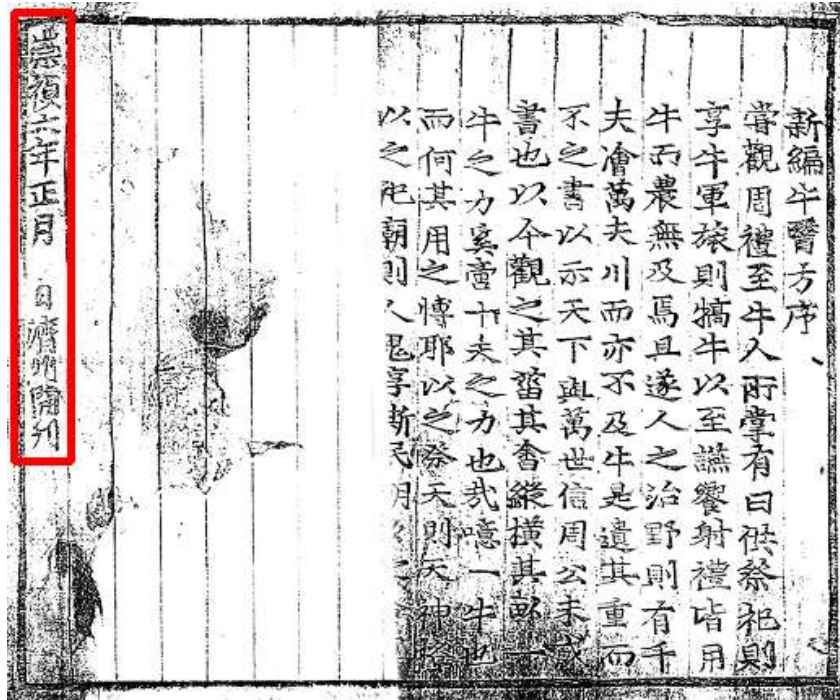 新編牛醫方序
嘗觀周禮至牛人所掌有曰供祭祀則
享牛軍旅則犒牛以至讌饗射禮皆用
牛而農無及焉且遂人之治野則有千
夫澮萬夫川而亦不及牛是遺其重而
不之書以示天下與萬世信周公未成
書也以今觀之其菑其畬縱橫其畝一
牛之力奚啻十夫之力也哉噫一牛也
而何其用之博耶以之祭天則天神降
以之祀朝則人鬼享斯民
崇禎六年正月 日濟州開刊